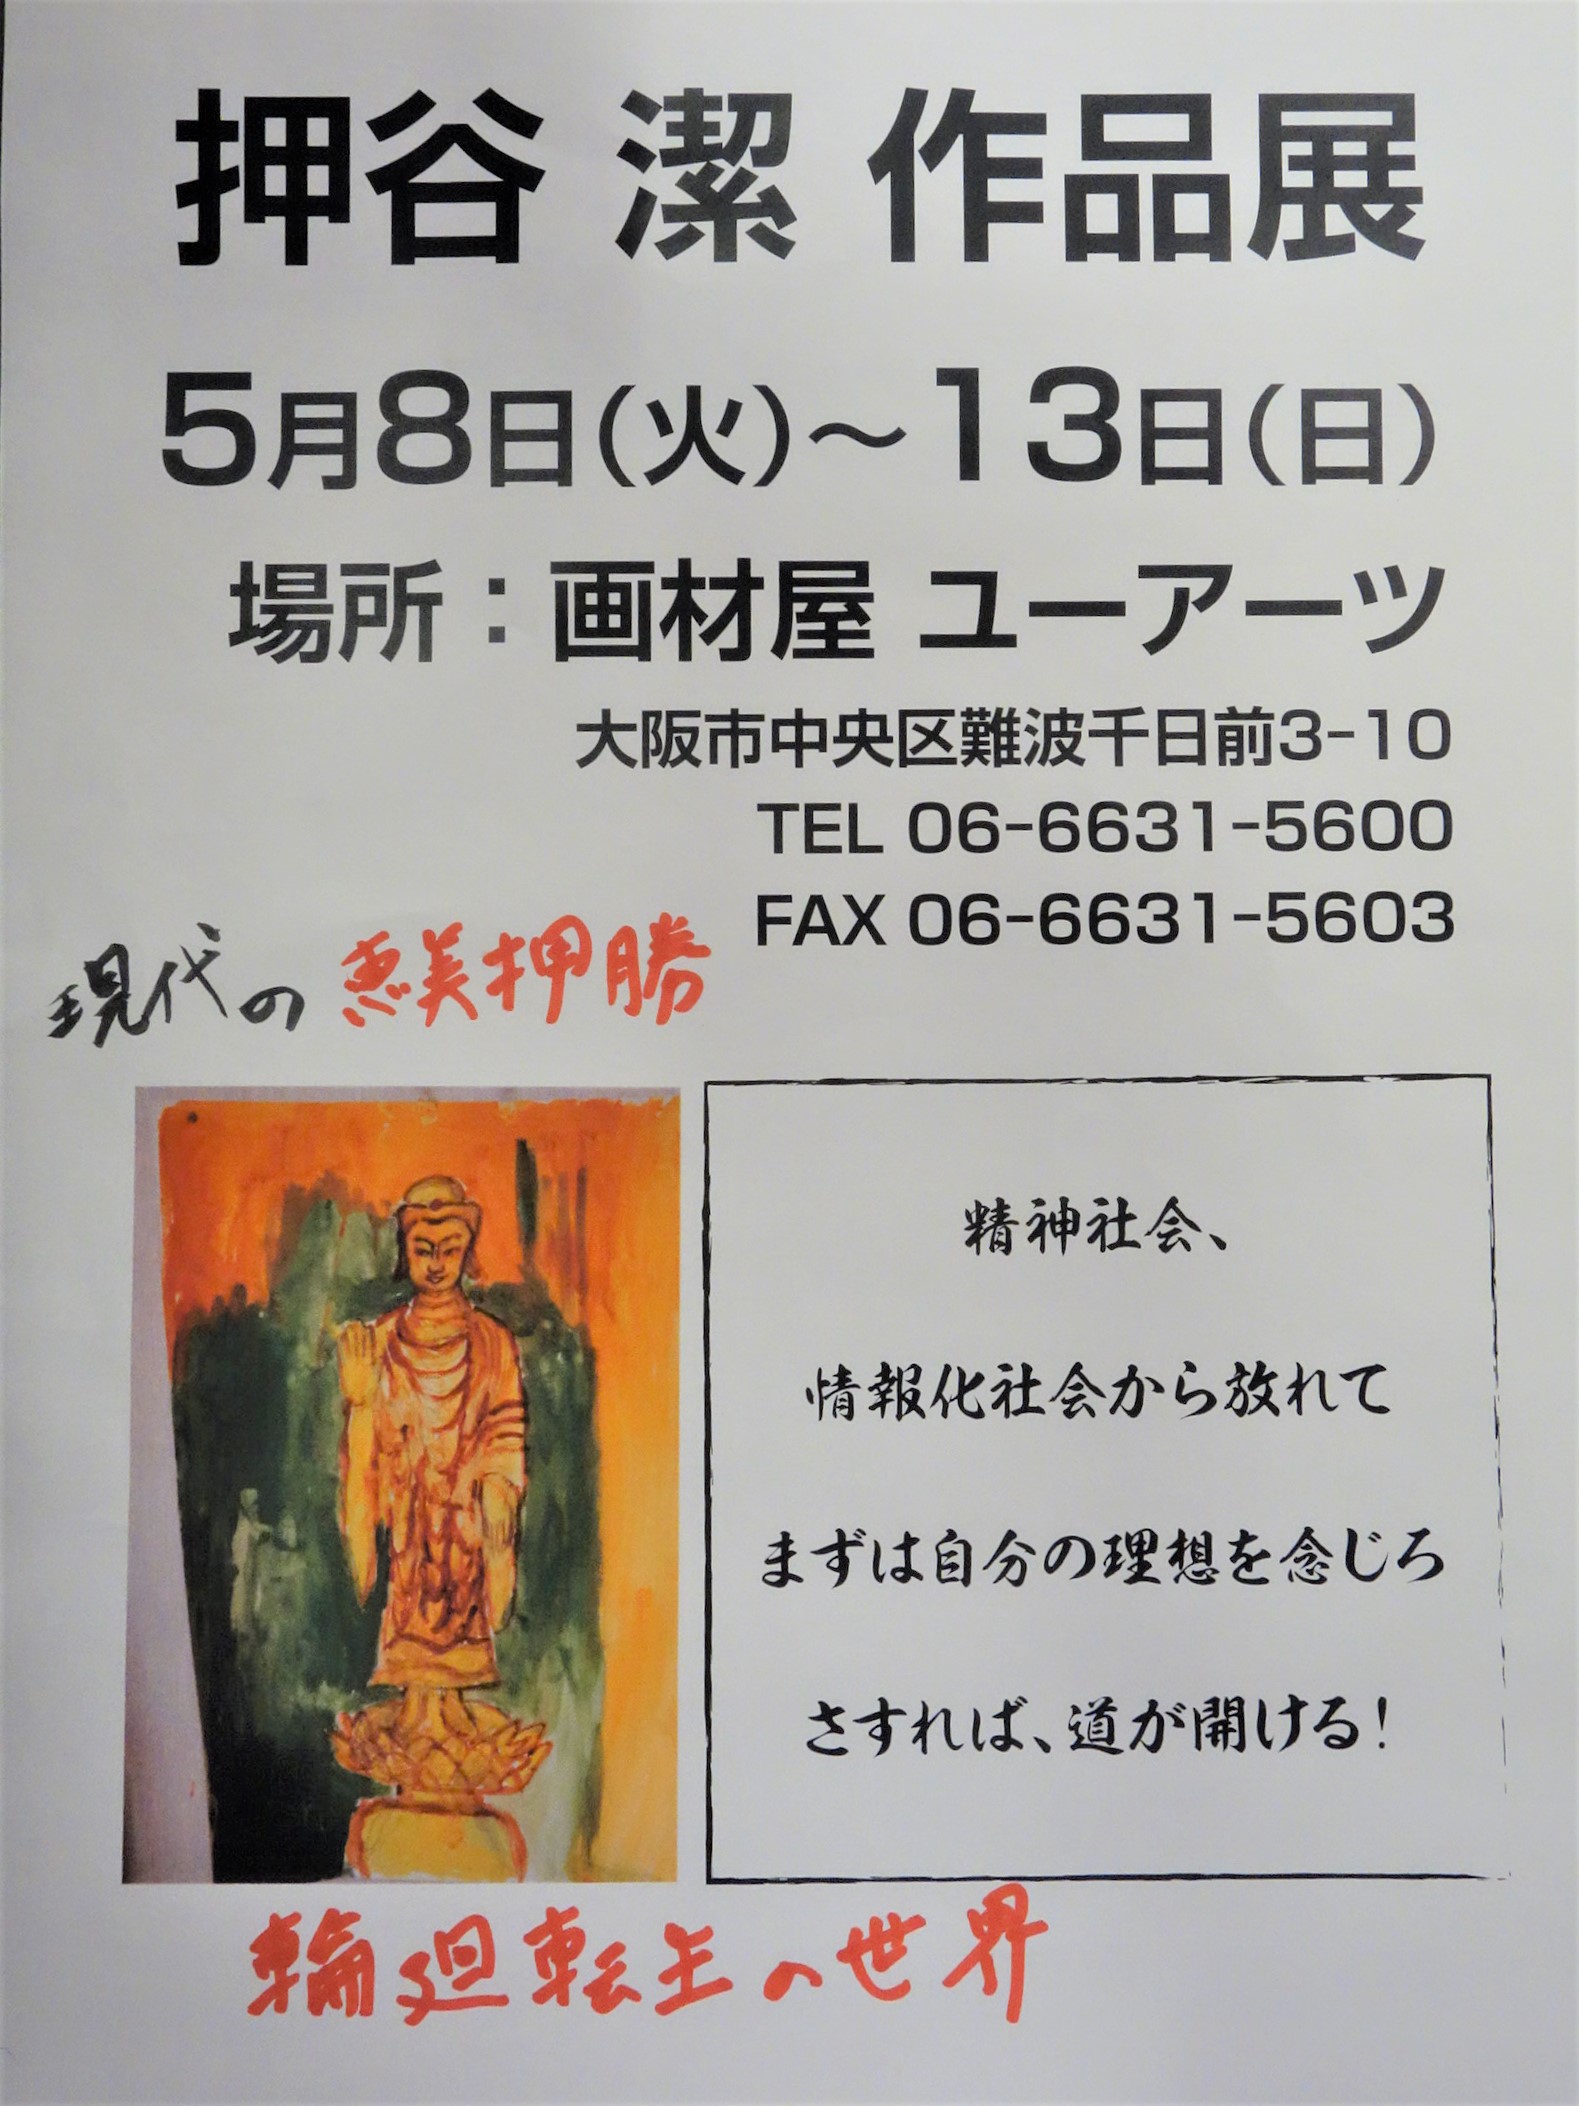 押谷 潔 作品展
5月8日(火)～13日(日)
場所：画材屋 ユーアーツ
大阪市中央区難波千日前3-10
TEL 06-6631-5600
FAX 06-6631-5603
現代の 恵美押勝
精神社会、
情報化社会から放れて
まずは自分の理想を念じろ
さすれば、道が開ける!
輪廻転生の世界